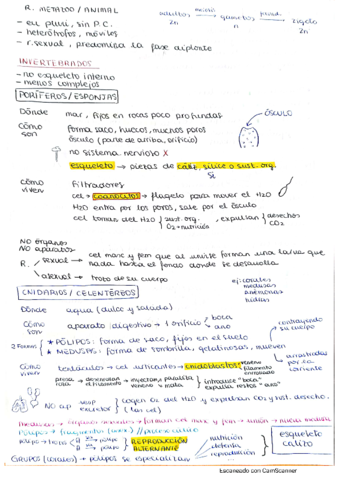 R. METAZOO / ANIMAL
adultos → meiosis → gametos → fecund. → zigoto
2n n 2n
- eu pluri, sin P.C.
- heterótrofos, móviles
- r. sexual, predomina la fase diploide
INVERTEBRADOS
- no esqueleto interno
- menos complejos
PORÍFEROS/ESPONJAS
Dónde mar, fijos en rocas poco profundas
Cómo son forma saco, huecos, muchos poros
ósculo (parte de arriba, orificio)
ÓSCULO
no sistema nervioso X
esqueleto → de caliz, sílice o sust. org.
cómo viven Filtradores
cel → coanocitos → flagelo para mover el H2O
H2O entra por los poros, sale por el ósculo
cel toman del H2O sust. org. O2 + nutrición, expulsan desechos CO2
NO órganos
NO aparatos
R. sexual → cel masc y fem que al unirse forman una larva que
nada hasta el fondo donde se desarrolla
asexual → trozo de su cuerpo
ej: corales
medusas
anémonas
hidras
CNIDARIOS/CELENTÉREOS
Dónde agua (dulce y salada)
Cómo son aparato digestivo → 1 orificio boca ano
contrayendo su cuerpo
2 Formas ★ PÓLIPOS: forma de saco, fijos en el suelo
★ MEDUSAS: forma de sombrilla, gelatinosas, mueven
arrastradas por la corriente
Cómo viven tentáculos → cel urticantes → cnidoblastos veneno filamento enrollado
presa roza → desenrollan el filamento → inyectan veneno → paraliza o mata → introduce "boca" expulsa restos "ano"
NO ap. resp excretor cogen O2 del H2O y expulsan CO2 y sust. desecho.
(las cel)
REPRODUCCIÓN ALTERNANTE
GRUPOS (corales) → pólipos se especializan nutrición defensa reproducción
esqueleto calizo
Escaneado con CamScanner